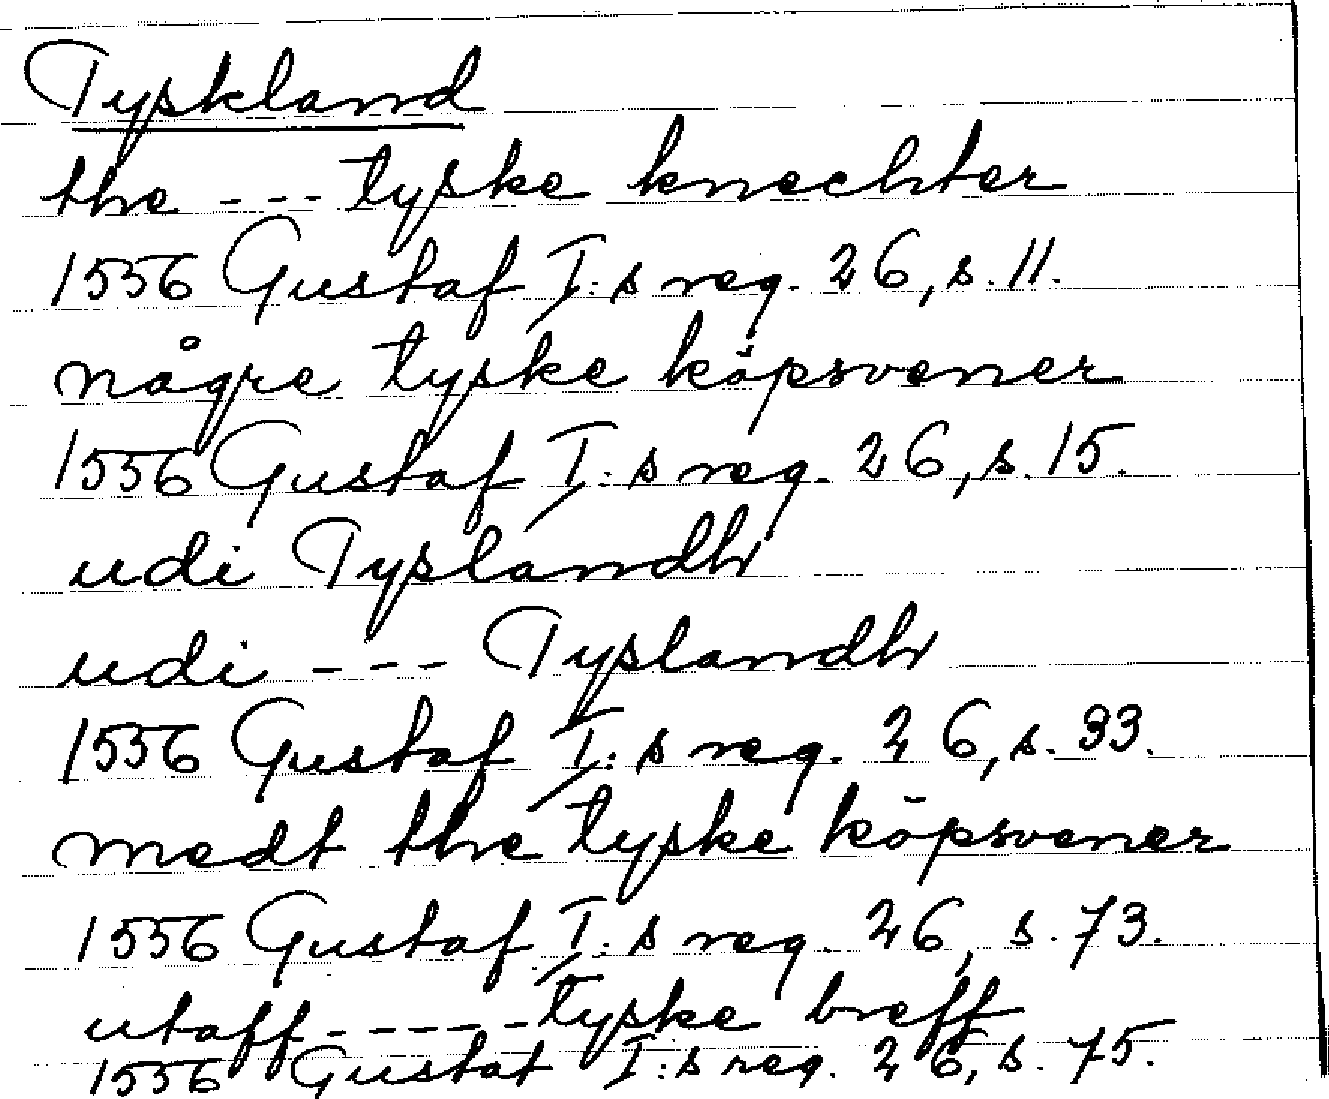 Tyskland
the --- tyske knechter
1556 Gustaf I:s reg. 26, s. 11.
någre tyske köpsvener
1556 Gustaf I:s reg. 26, s. 15.
udi Tyslandh
udi --- Tyslandh
1556 Gustaf I:s reg. 26, s. 33.
medt the tyske köpsvener
1556 Gustaf I:s reg. 26, s. 73.
utaff ----- tyske breff
1556 Gustaf I:s reg. 26, s. 75.